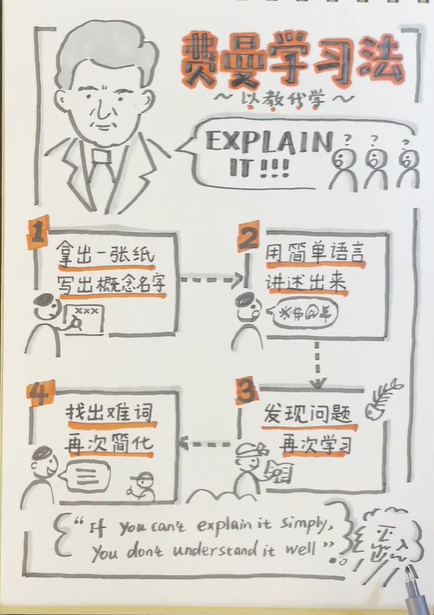 费曼学习法
~以教代学~
EXPLAIN
IT!!!
? ? ?
1
拿出一张纸
写出概念名字
XXX
2
用简单语言
讲述出来
3
发现问题
再次学习
4
找出难词
再次简化
"If you can't explain it simply,
You don't understand it well"